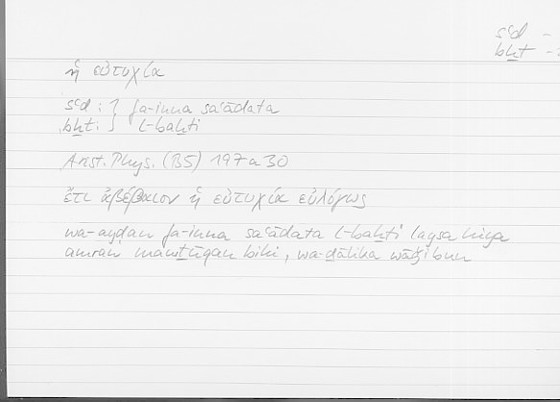 sʿd -
bḫt -
ἡ εὐτυχία
sʿd : } fa-inna saʿādata
bḫt. } l-baḫti
Arist. Phys. (B5) 197 a 30
ἔτι ἀβέβαιον ἡ εὐτυχία εὐλόγως
wa-ayḍan fa-inna saʿādata l-baḫti laysa hiya
amran mawṯūqan bihi, wa-ḏālika wāǧibun